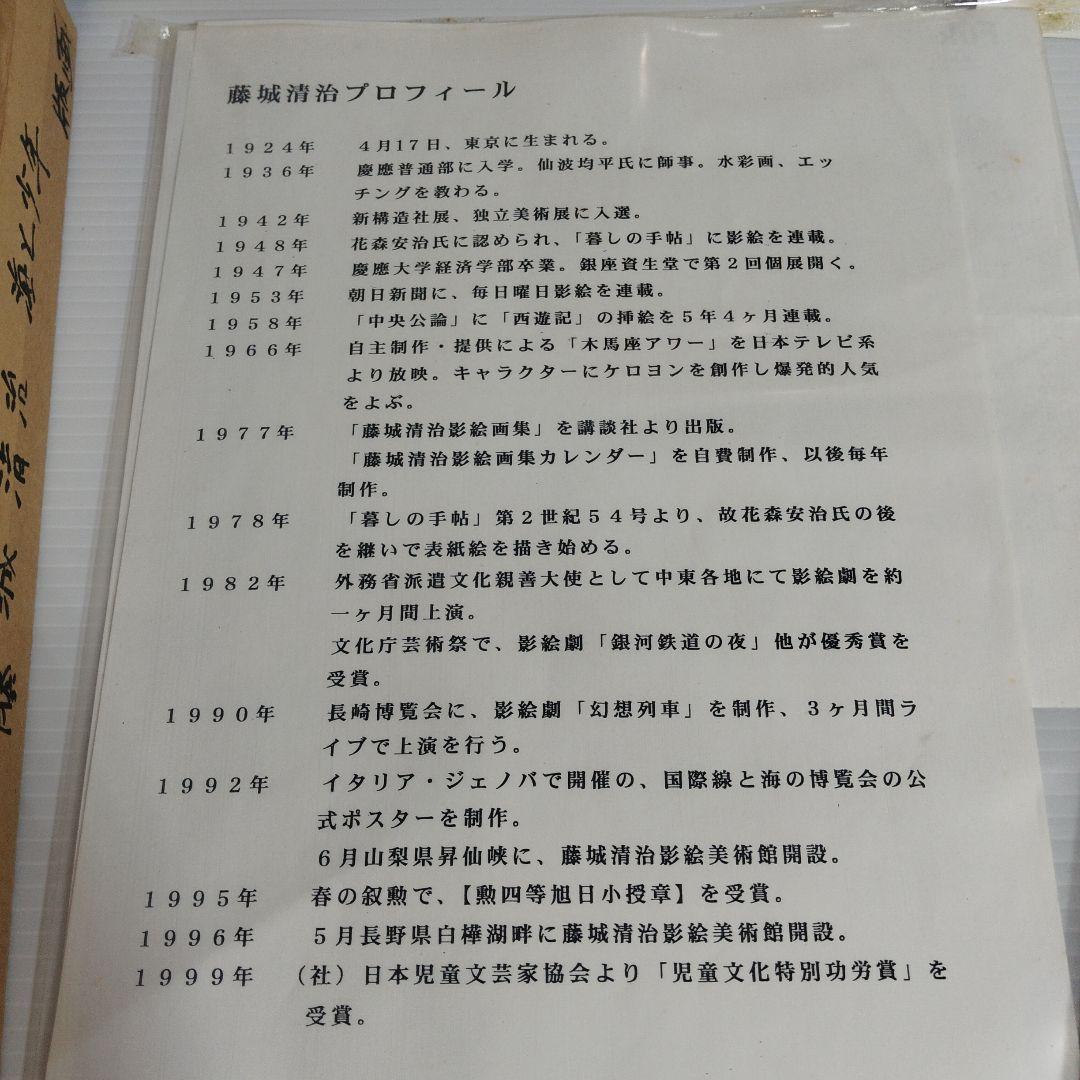 藤城清治プロフィール
1924年 4月17日、東京に生まれる。
1936年 慶應普通部に入学。仙波均平氏に師事。水彩画、エッ
チングを教わる。
1942年 新構造社展、独立美術展に入選。
1948年 花森安治氏に認められ、「暮しの手帖」に影絵を連載。
1947年 慶應大学経済学部卒業。銀座資生堂で第2回個展開く。
1953年 朝日新聞に、毎日曜日影絵を連載。
1958年 「中央公論」に「西遊記」の挿絵を5年4ヶ月連載。
1966年 自主制作・提供による「木馬座アワー」を日本テレビ系
より放映。キャラクターにケロヨンを創作し爆発的人気
をよぶ。
1977年 「藤城清治影絵画集」を講談社より出版。
「藤城清治影絵画集カレンダー」を自費制作、以後毎年
制作。
1978年 「暮しの手帖」第2世紀54号より、故花森安治氏の後
を継いで表紙絵を描き始める。
1982年 外務省派遣文化親善大使として中東各地にて影絵劇を約
一ヶ月間上演。
文化庁芸術祭で、影絵劇「銀河鉄道の夜」他が優秀賞を
受賞。
1990年 長崎博覧会に、影絵劇「幻想列車」を制作、3ヶ月間ラ
イブで上演を行う。
1992年 イタリア・ジェノバで開催の、国際線と海の博覧会の公
式ポスターを制作。
6月山梨県昇仙峡に、藤城清治影絵美術館開設。
1995年 春の叙勲で、【勲四等旭日小授章】を受賞。
1996年 5月長野県白樺湖畔に藤城清治影絵美術館開設。
1999年 （社）日本児童文芸家協会より「児童文化特別功労賞」を
受賞。
藤城清治 版画